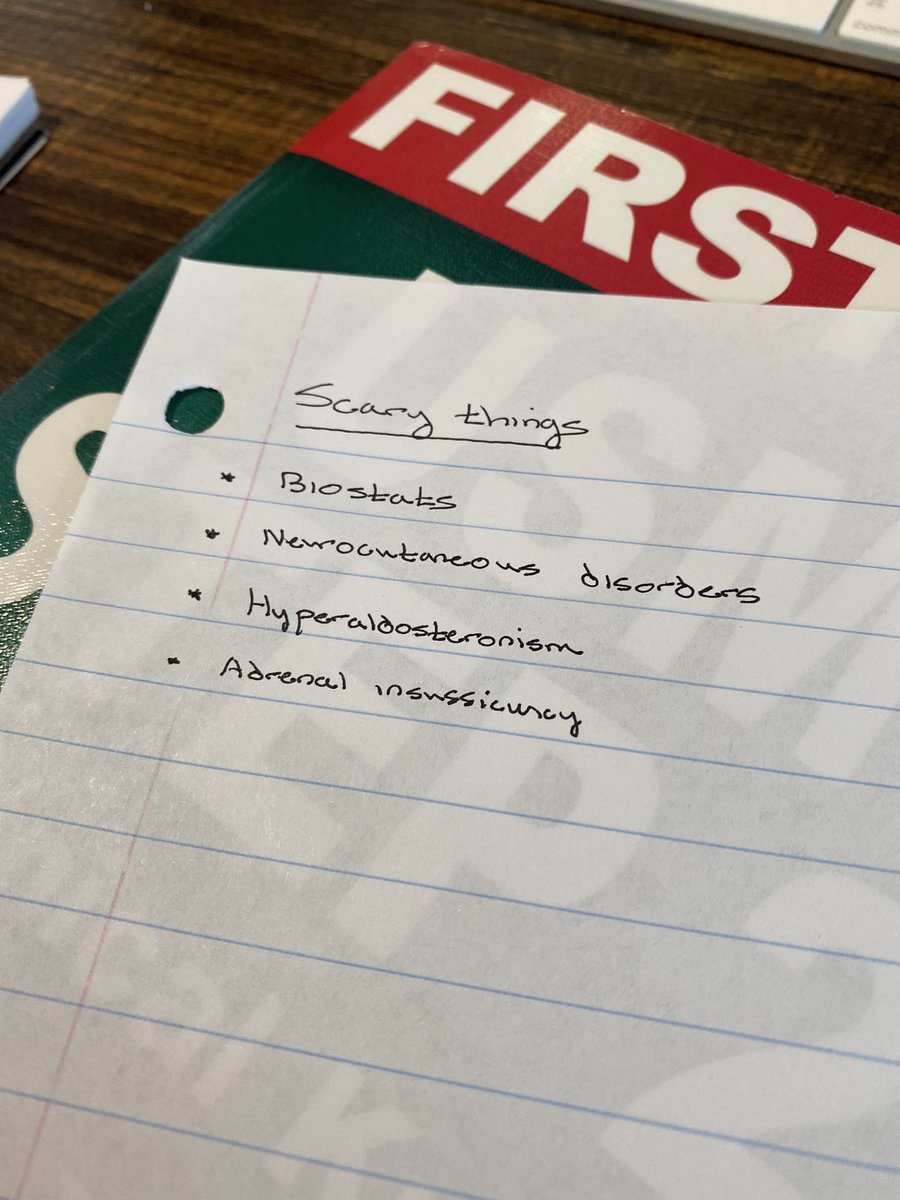 FIRST
Scary things
* Biostats
* Neurocutaneous disorders
* Hyperaldosteronism
* Adrenal insussiciency